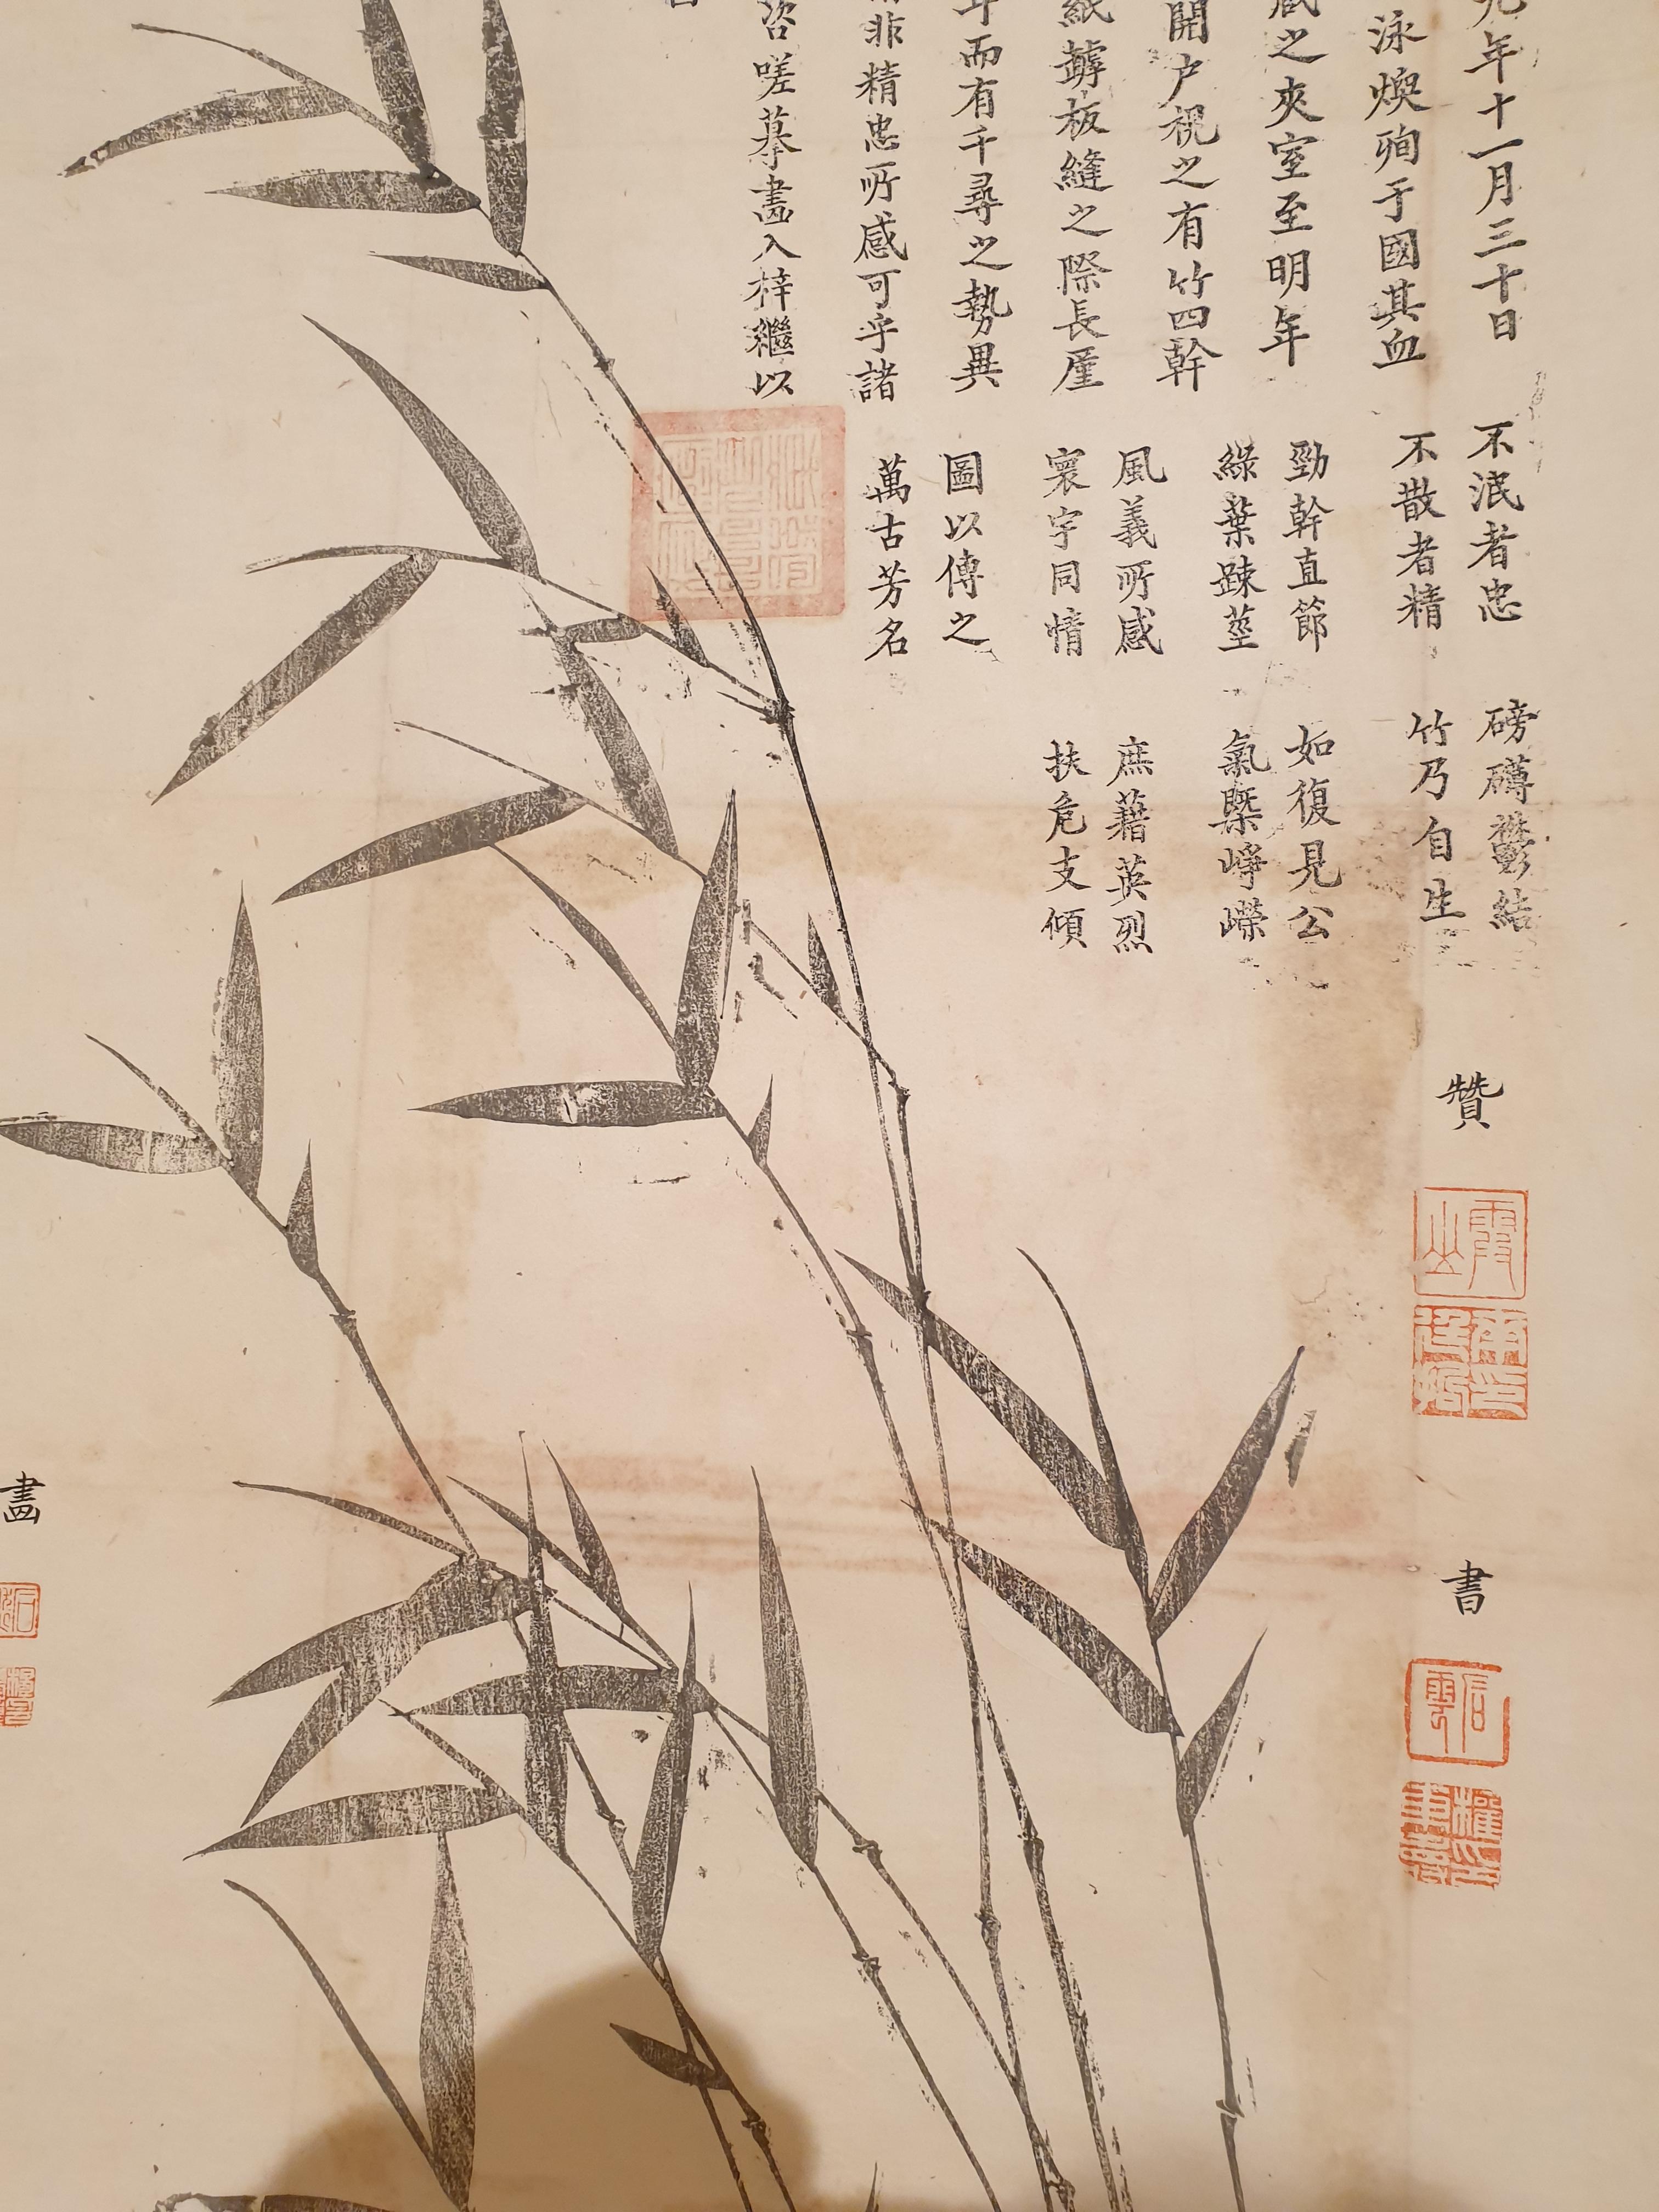 年十一月三十日
泳煥殉于國其血
之夾室至明年
開户視之有竹四幹
紙罅板縫之際長厪
而有千尋之勢異
非精忠所感可乎諸
咨嗟摹畵入梓繼以
不泯者忠 磅礴鬱結
不散者精 竹乃自生
勁幹直節 如復見公
綠葉踈莖 氣槩崢嶸
風義所感 庶藉英烈
寰宇同情 扶危支傾
圖以傳之
萬古芳名
贊
書
畵